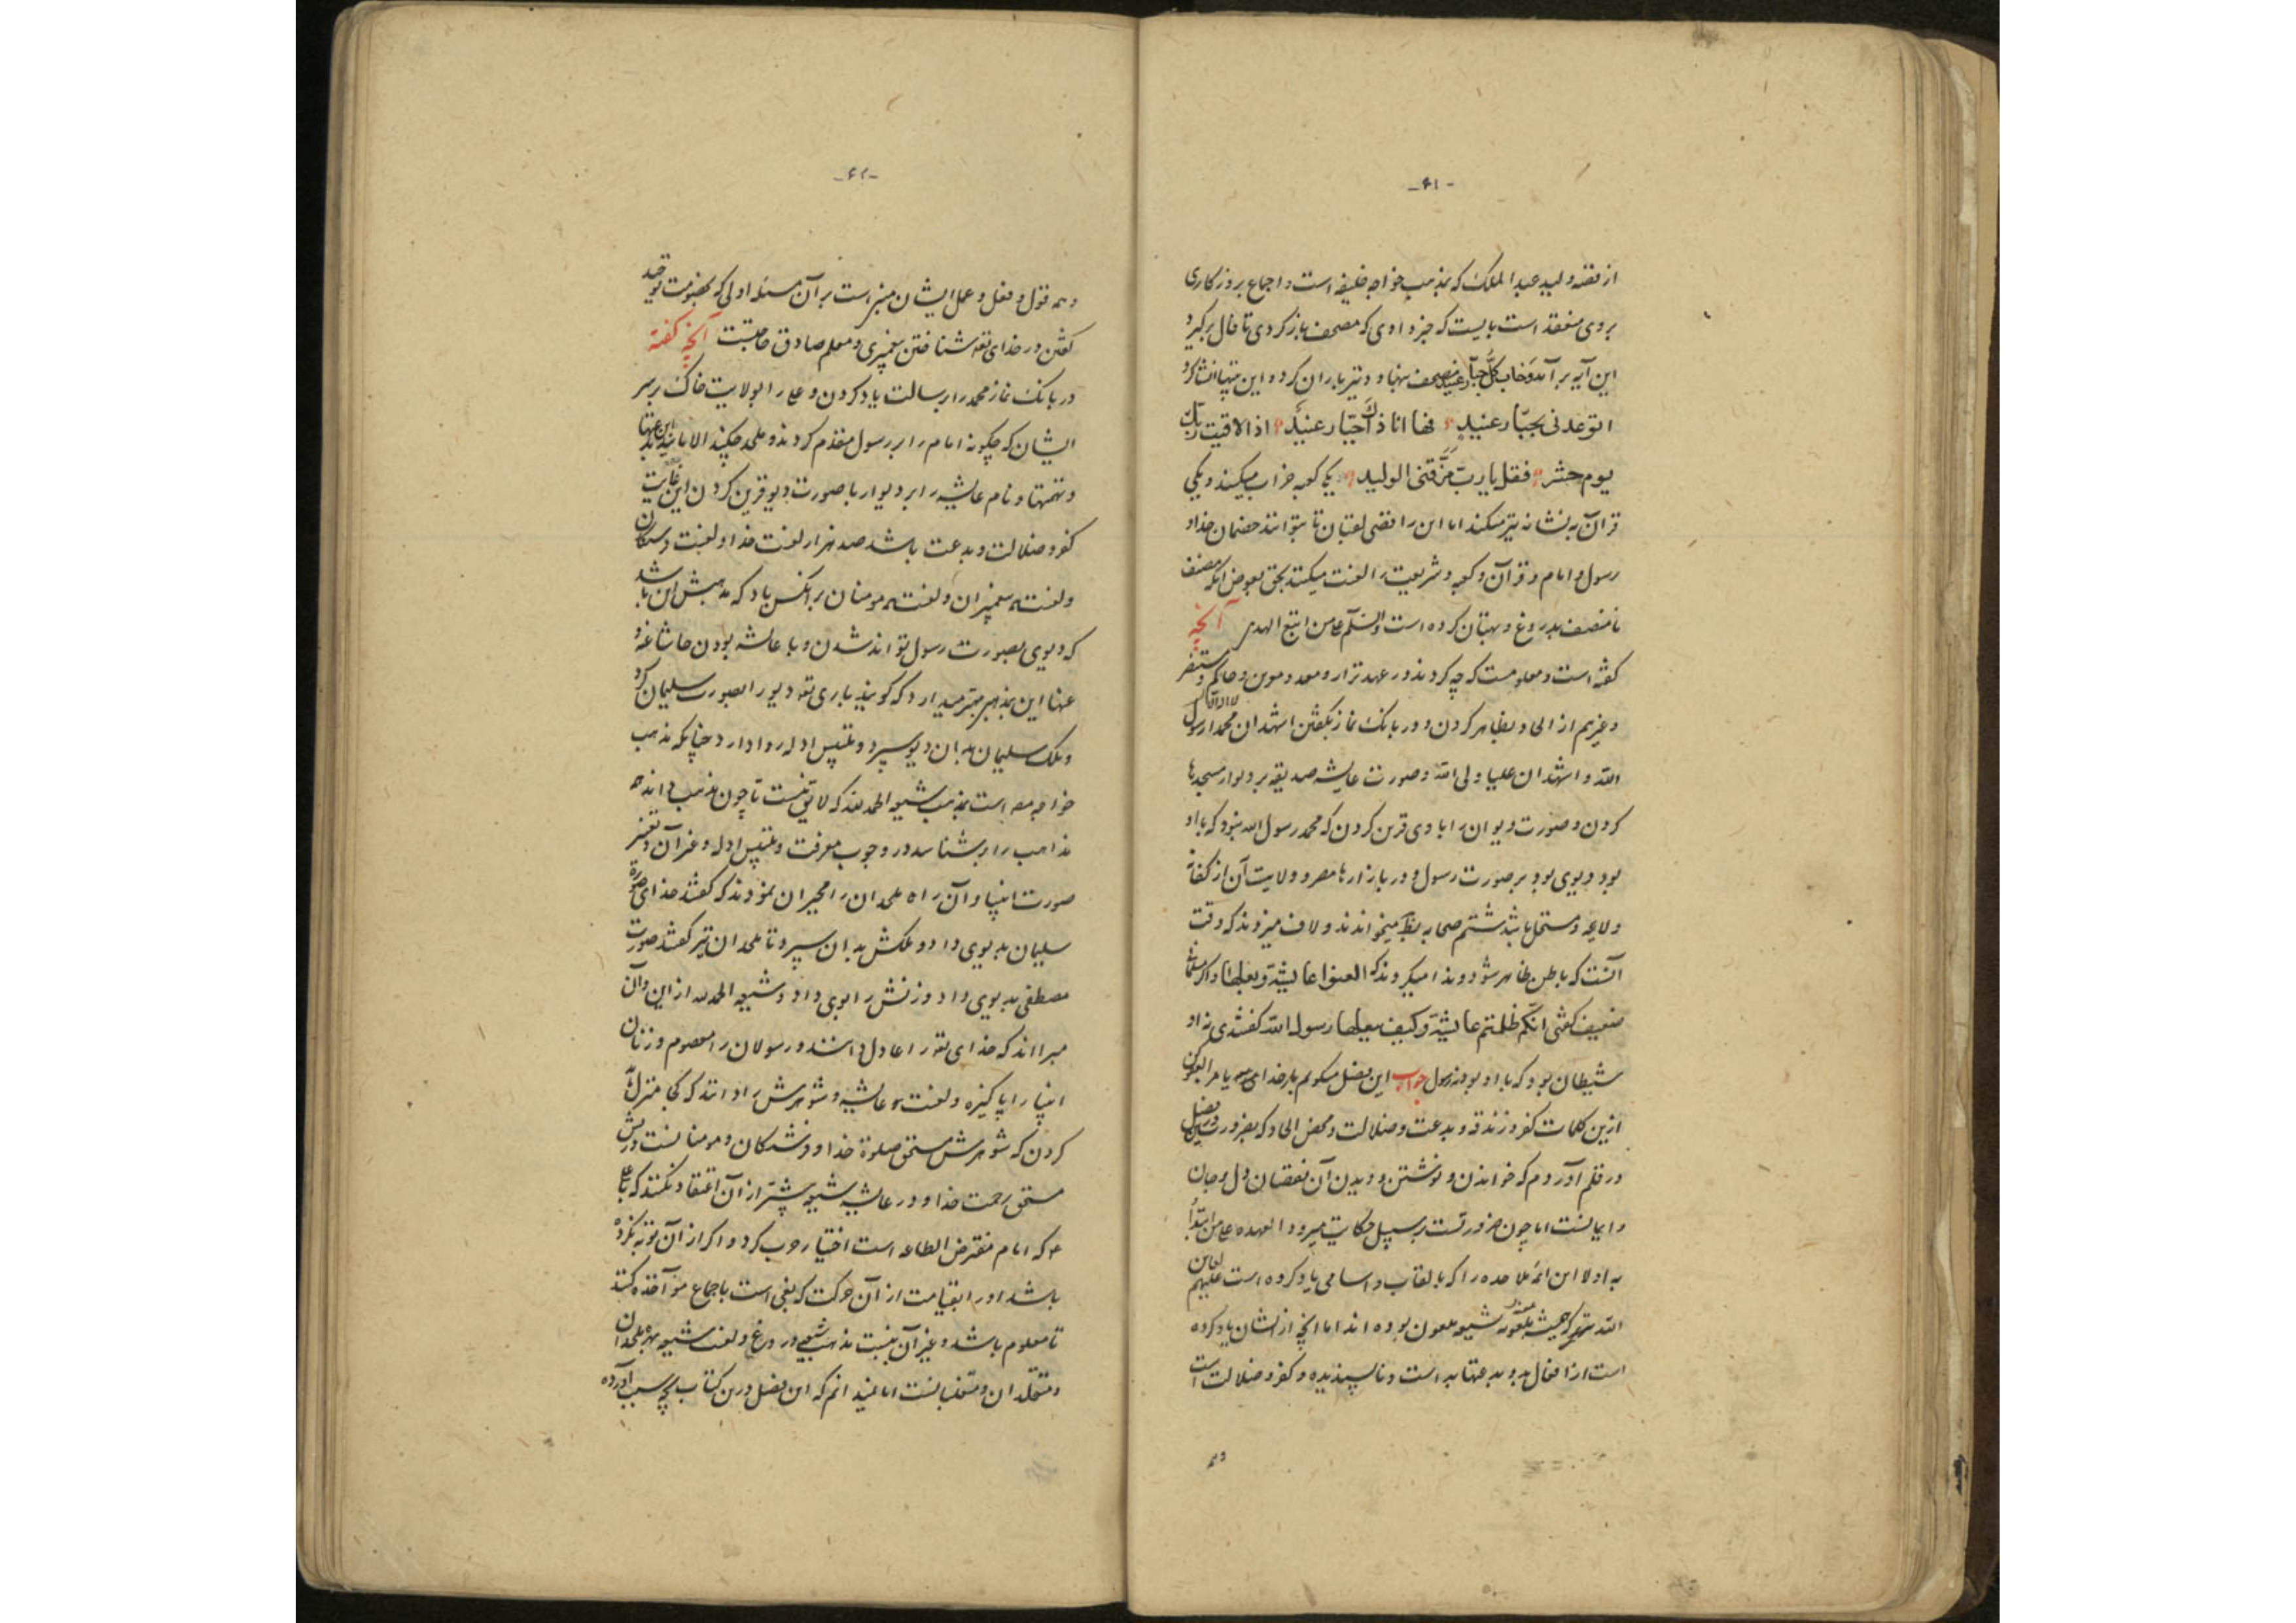 -۶۱-
از قصه ولید عبد الملک که بمذهب خواجه خلیفه است و اجماع بروزکاری
بروی منعقد است بایست که خبر دادی که مصحف بازکردی تا فال برکیرد
این آیه بر آمد وَخاب کلّ جبّار عنید مصحف بنهاد و تیرباران کرد و این بیتها انشا کرد
اتوعدنی بجبّار عنیدٍ فها انا ذاک جبّار عنیدٌ اذا لاقیت ربّک
یوم حشر فقل یا ربّ مَزَّقنی الولید یکی کعبه خراب میکند و یکی
قرآن به نشانه تیر میکند اما این رافضی لقبان تا بتوانند خصمان خدا و
رسول و امام و قرآن و کعبه و شریعت را لعنت میکنند بحق بعوض آنکه مصنف
نامنصف بدروغ و بهتان کرده است والسّلم علی من اتبع الهدی آنچه
کفته است و معلومست که چه کردند در عهد نزار و معد و مومن و حاکم و مستنصر
و غیرهم از الحاد بظاهر کردن و در بانک نماز بکفتن اشهد ان محمدا رسول
الله و اشهد ان علیا ولی الله و صورت عایشه صدیقه بر دیوار مسجدها
کردن و صورت دیوان را با وی قرین کردن که محمد رسول الله نبود که با او
بود دیوی بود بر صورت رسول و در بازارها مصر و ولایت آن از کفاة
و لاعه و مستحل باشد شتم صحابه بنظم میخواندند و لاف میزدند که وقت
آنست که باطن ظاهر شود و ندا میکردند که العنوا عایشة وبعلها و اکر مسلمانی
ضعیف کفتی انکم ظلمتم عایشة وکیف بعلها رسول الله کفتندی نه او
شیطان بود که با او بود نه رسول جواب این فصل میکویم بار خدای
ازین کلمات کفر و زندقه و بدعت و ضلالت و محض الحاد که بضرورت درین فصل
در قلم آوردم که خواندن و نوشتن و دیدن آن نقصان دل و جان
و ایمانست اما چون ضرورتست بر سبیل حکایت میرود و العهده علی من ابتدأ
به اولا این ائمه ملاحده را که بالقاب و اسامی یاد کرده است علیهم لعاین
الله تترا که همیشه شیعه ملعون بوده اند اما آنچه از ایشان یاد کرده
است از افعال بد و بدعتها بد است و ناپسندیده و کفر و ضلالت است
وهمه
-۶۲-
و همه قول و فعل و عمل ایشان مبنی است بر آن مسئله اولی که بخصومت توحید
کفتن در خدای تعه شناختن پیغمبری و معلم صادق حاجتست آنچه کفته
در بانک نماز محمد را رسالت یاد کردن و علی را بولایت خاک بر سر
ایشان که چکونه امام را بر رسول مقدم کردند و ملحد چکند الا مانند این بدعتها
و تهمتها و نام عایشه را بر دیوار با صورت دیو قرین کردن این غایت
کفر و ضلالت و بدعت باشد صد هزار لعنت خدا و لعنت فرستکان
و لعنت پیغمبران و لعنت مومنان بر آنکس باد که مذهبش این باشد
که دیوی بصورت رسول تواند شدن و با عایشه بودن حاشا عنه و
عنها این بمذهب مجبر میدارد که کویند باری تعه دیو را بصورت سلیمان کرد
و ملک سلیمان بدان دیو سپرد و تلبیس ادله روا دارد چنانکه مذهب
خواجه است بمذهب شیعه الحمد لله که لایق نیست تا چون مذهب داند همه
مذاهب را بشناسد در وجوب معرفت و تلبیس ادله و غیر آن و تغییر
صورت انبیا و آن راه ملحدان را مجبران نمودند که کفتند خدای صورة
سلیمان به دیوی داد و ملکش بدان سپرد تا ملحدان نیز کفتند صورت
مصطفی به دیوی داد و زنش را بوی داد و شیعه الحمد لله از این و آن
مبرااند که خدای تعه را عادل دانند و رسولان را معصوم و زنان
انبیا را پاکیزه و لعنت بر عایشه و شوهرش روا دانند که کجا منزل
کردن که شوهرش مستحق صلوة خدا و فرشتکان و مومنانست و زنش
مستحق رحمت خدا و در عایشه شیعه بیشتر از آن اعتقاد نکنند که با علی
ع که امام مفترض الطاعه است اختیار حرب کرد و اکر از آن توبه نکرده
باشد او را بقیامت از آن حرکت که بغی است باجماع مؤآخذه کنند
تا معلوم باشد و غیر آن نیست مذهب شیعه و دروغ و لعنت شیعه بهره ملحدان
و مقلدان و متعصبانست اما نمیدانم که این فصل درین کتاب بچه سبب آورده